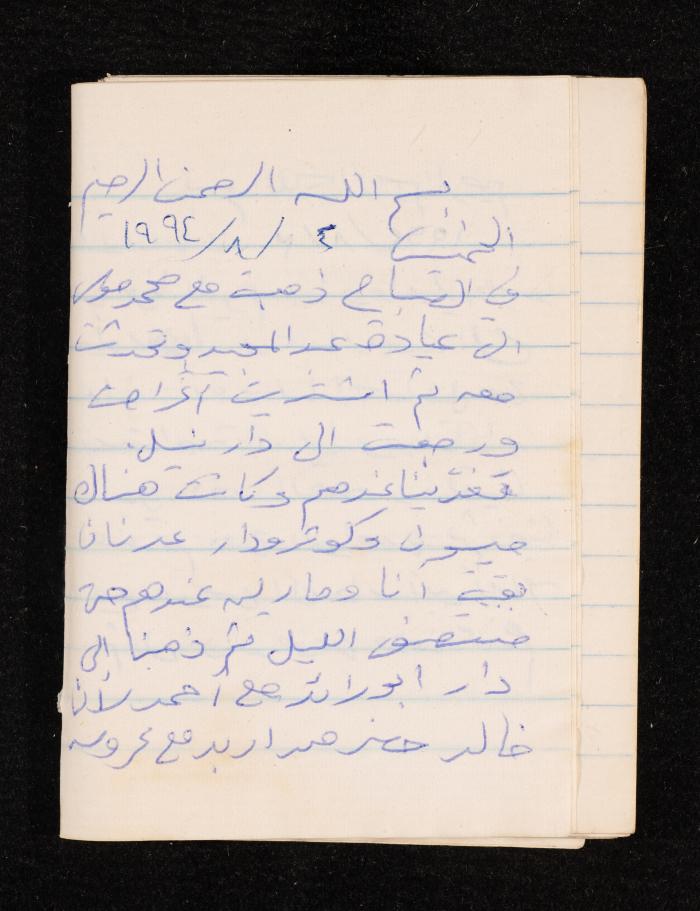 بسم الله الرحمن الرحيم
الخميس ٤ /٨/ ١٩٩٤
في الصباح ذهبت مع محمد موسى
الى عيادة عبد المجيد وتحدثت
معه ثم اشتريت أغراض
ورجعت الى دار نبيل.
تغدينا عندهم وكانت هناك
ميسون وكوثر ودار عدنان
بقيت أنا وماريه عندهم حتى
منتصف الليل ثم ذهبنا الى
دار ابو رائد مع أحمد لأن
خالد حضر من اربد مع عروسه